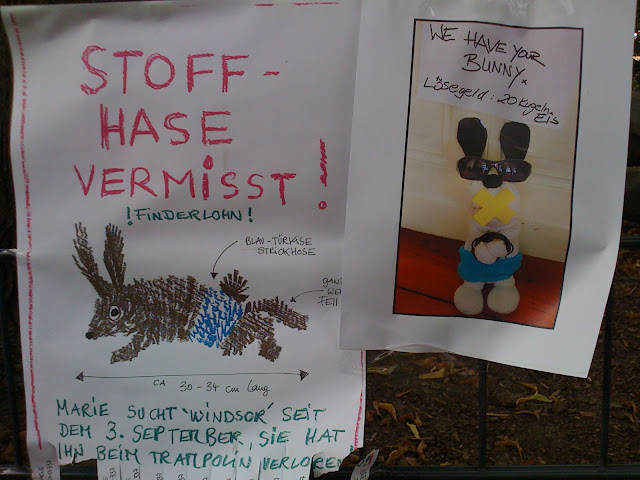 STOFF-
HASE
VERMISST!
! FINDERLOHN !
BLAU-TÜRKISE
STRICKHOSE
GANZ
WEI
FELL
CA 30-34 cm lang
MARIE SUCHT 'WINDSOR' SEIT
DEM 3. SEPTEMBER, SIE HAT
IHN BEIM TRAMPOLIN VERLOREN
WE HAVE YOUR
BUNNY.
Lösegeld: 20 Kugeln
Eis